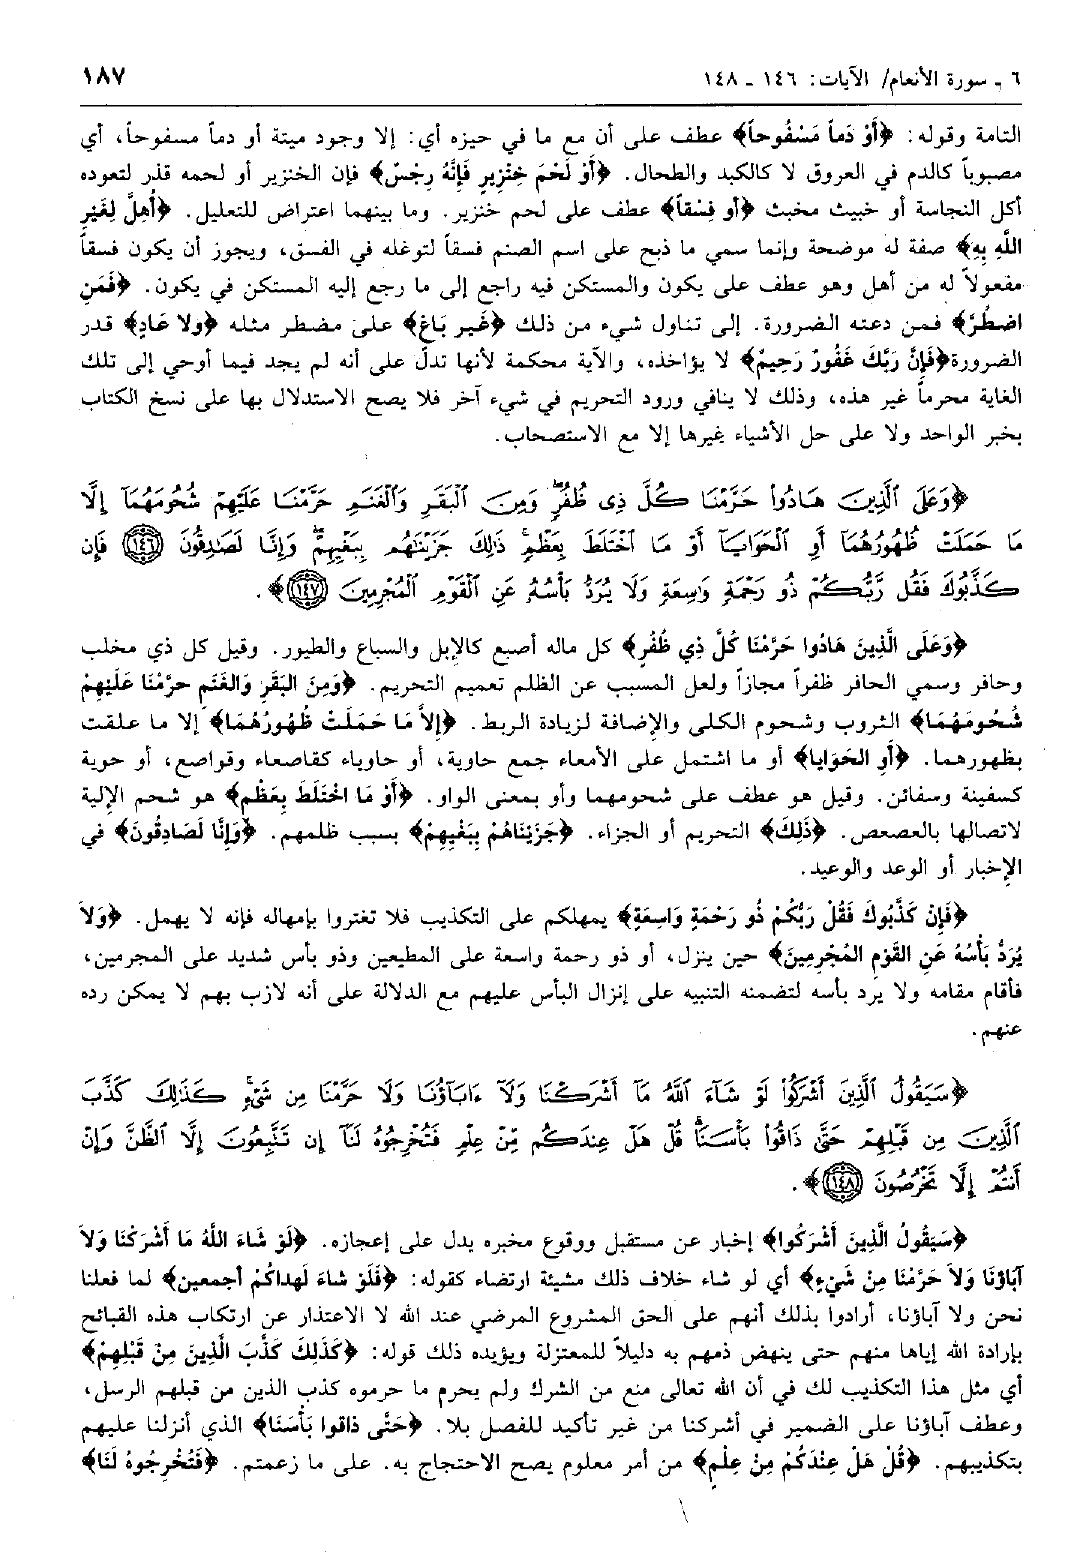 ٦ - سورة الأنعام/ الآيات: ١٤٦ - ١٤٨
١٨٧
التامة وقوله: ﴿أَوْ دَماً مَسْفُوحاً﴾ عطف على أن مع ما في حيزه أي: إلا وجود ميتة أو دماً مسفوحاً، أي
مصبوباً كالدم في العروق لا كالكبد والطحال. ﴿أَوْ لَحْمَ خِنْزِيرٍ فَإِنَّهُ رِجْسٌ﴾ فإن الخنزير أو لحمه قذر لتعوده
أكل النجاسة أو خبيث مخبث ﴿أو فِسْقاً﴾ عطف على لحم خنزير. وما بينهما اعتراض للتعليل. ﴿أُهِلَّ لِغَيْرِ
اللَّهِ بِهِ﴾ صفة له موضحة وإنما سمي ما ذبح على اسم الصنم فسقاً لتوغله في الفسق، ويجوز أن يكون فسقاً
مفعولاً له من أهل وهو عطف على يكون والمستكن فيه راجع إلى ما رجع إليه المستكن في يكون. ﴿فَمَنِ
اضطُرَّ﴾ فمن دعته الضرورة. إلى تناول شيء من ذلك ﴿غَير بَاغٍ﴾ على مضطر مثله ﴿ولا عَادٍ﴾ قدر
الضرورة ﴿فَإِنَّ رَبَّكَ غَفُورٌ رَحِيمٌ﴾ لا يؤاخذه، والآية محكمة لأنها تدلّ على أنه لم يجد فيما أوحي إلى تلك
الغاية محرماً غير هذه، وذلك لا ينافي ورود التحريم في شيء آخر فلا يصح الاستدلال بها على نسخ الكتاب
بخبر الواحد ولا على حل الأشياء غيرها إلا مع الاستصحاب.
﴿وَعَلَى ٱلَّذِينَ هَادُوا۟ حَرَّمْنَا كُلَّ ذِى ظُفُرٍ وَمِنَ ٱلْبَقَرِ وَٱلْغَنَمِ حَرَّمْنَا عَلَيْهِمْ شُحُومَهُمَآ إِلَّا
مَا حَمَلَتْ ظُهُورُهُمَآ أَوِ ٱلْحَوَايَآ أَوْ مَا ٱخْتَلَطَ بِعَظْمٍ ذَٰلِكَ جَزَيْنَٰهُم بِبَغْيِهِمْ وَإِنَّا لَصَٰدِقُونَ ١٤٦ فَإِن
كَذَّبُوكَ فَقُل رَّبُّكُمْ ذُو رَحْمَةٍ وَٰسِعَةٍ وَلَا يُرَدُّ بَأْسُهُ عَنِ ٱلْقَوْمِ ٱلْمُجْرِمِينَ ١٤٧﴾.
﴿وَعَلَى الَّذِينَ هَادُوا حَرَّمْنَا كُلَّ ذِي ظُفُرٍ﴾ كل ماله أصبع كالإبل والسباع والطيور. وقيل كل ذي مخلب
وحافر وسمي الحافر ظفراً مجازاً ولعل المسبب عن الظلم تعميم التحريم. ﴿وَمِنَ البَقَرِ وَالغَنَمِ حرَّمْنَا عَلَيْهِمْ
شُحُومَهُمَا﴾ الثروب وشحوم الكلى والإضافة لزيادة الربط. ﴿إِلاَّ مَا حَمَلَتْ ظُهُورُهُمَا﴾ إلا ما علقت
بظهورهما. ﴿أَوِ الحَوَايَا﴾ أو ما اشتمل على الأمعاء جمع حاوية، أو حاوياء كقاصعاء وقواصع، أو حوية
كسفينة وسفائن. وقيل هو عطف على شحومهما وأو بمعنى الواو. ﴿أَوْ مَا اخْتَلَطَ بِعَظْمٍ﴾ هو شحم الإلية
لاتصالها بالعصعص. ﴿ذَلِكَ﴾ التحريم أو الجزاء. ﴿جَزَيْنَاهُمْ بِبَغْيِهِمْ﴾ بسبب ظلمهم. ﴿وَإِنَّا لَصَادِقُونَ﴾ في
الإخبار أو الوعد والوعيد.
﴿فَإِنْ كَذَّبُوكَ فَقُلْ رَبُّكُمْ ذُو رَحْمَةٍ وَاسِعَةٍ﴾ يمهلكم على التكذيب فلا تغتروا بإمهاله فإنه لا يهمل. ﴿وَلاَ
يُرَدُّ بَأْسُهُ عَنِ القَوْمِ المُجْرِمِينَ﴾ حين ينزل، أو ذو رحمة واسعة على المطيعين وذو بأس شديد على المجرمين،
فأقام مقامه ولا يرد بأسه لتضمنه التنبيه على إنزال البأس عليهم مع الدلالة على أنه لازب بهم لا يمكن رده
عنهم.
﴿سَيَقُولُ ٱلَّذِينَ أَشْرَكُوا۟ لَوْ شَآءَ ٱللَّهُ مَآ أَشْرَكْنَا وَلَآ ءَابَآؤُنَا وَلَا حَرَّمْنَا مِن شَىْءٍ كَذَٰلِكَ كَذَّبَ
ٱلَّذِينَ مِن قَبْلِهِمْ حَتَّىٰ ذَاقُوا۟ بَأْسَنَا قُلْ هَلْ عِندَكُم مِّنْ عِلْمٍ فَتُخْرِجُوهُ لَنَآ إِن تَتَّبِعُونَ إِلَّا ٱلظَّنَّ وَإِنْ
أَنتُمْ إِلَّا تَخْرُصُونَ ١٤٨﴾.
﴿سَيَقُولُ الَّذِينَ أَشْرَكُوا﴾ إخبار عن مستقبل ووقوع مخبره يدل على إعجازه. ﴿لَوْ شَاءَ اللَّهُ مَا أَشْرَكْنَا وَلاَ
آبَاؤُنَا وَلاَ حَرَّمْنَا مِنْ شَيْءٍ﴾ أي لو شاء خلاف ذلك مشيئة ارتضاء كقوله: ﴿فَلَوْ شَاءَ لَهداكُمْ أجمعين﴾ لما فعلنا
نحن ولا آباؤنا، أرادوا بذلك أنهم على الحق المشروع المرضي عند الله لا الاعتذار عن ارتكاب هذه القبائح
بإرادة الله إياها منهم حتى ينهض ذمهم به دليلاً للمعتزلة ويؤيده ذلك قوله: ﴿كَذَلِكَ كَذَّبَ الَّذِينَ مِنْ قَبْلِهِمْ﴾
أي مثل هذا التكذيب لك في أن الله تعالى منع من الشرك ولم يحرم ما حرموه كذب الذين من قبلهم الرسل،
وعطف آباؤنا على الضمير في أشركنا من غير تأكيد للفصل بلا. ﴿حَتَّى ذاقوا بَأْسَنَا﴾ الذي أنزلنا عليهم
بتكذيبهم. ﴿قُلْ هَلْ عِنْدَكُمْ مِنْ عِلْمٍ﴾ من أمر معلوم يصح الاحتجاج به. على ما زعمتم. ﴿فَتُخْرِجُوهُ لَنَا﴾